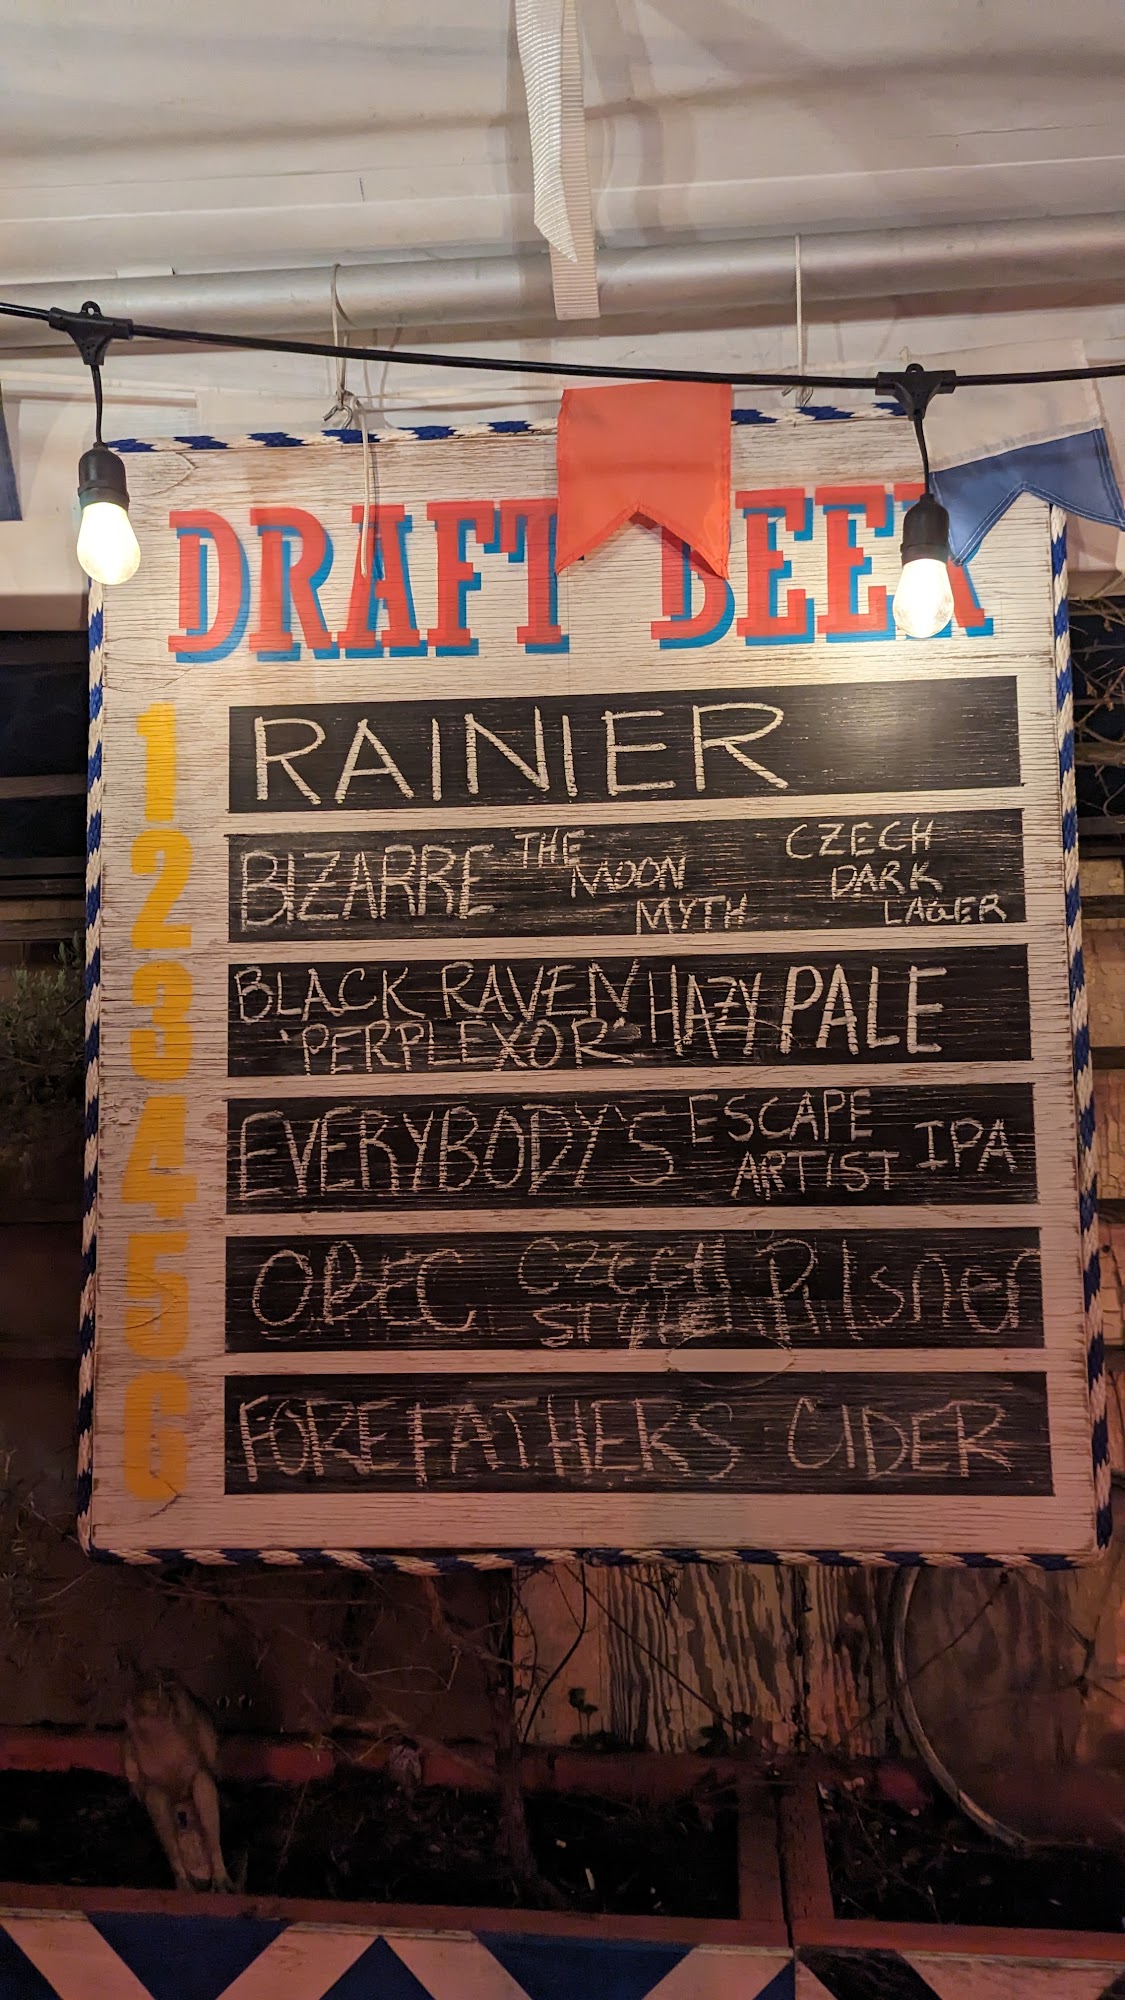 DRAFT BEER
1 RAINIER
2 BIZARRE THE MOON MYTH CZECH DARK LAGER
3 BLACK RAVEN "PERPLEXOR" HAZY PALE
4 EVERYBODY'S ESCAPE ARTIST IPA
5 OBEC CZECH STYLE Pilsner
6 FOREFATHERS CIDER